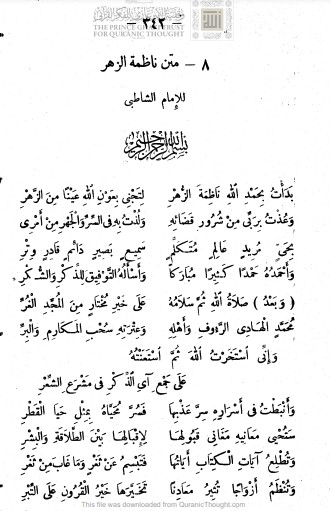 مؤسسة آل البيت للفكر الإسلامي
THE PRINCE GHAZI TRUST
FOR QURANIC THOUGHT
— ٣٤٢ —
٨ – متن ناظمة الزهر
للإمام الشاطبى
بسم الله الرحمن الرحيم
بَدَأْتُ بِحَمْدِ اللهِ نَاظِمَةَ الزُّهْرِ لِتَجْنِى بِعَوْنِ اللهِ عَيْنًا مِنَ الزَّهْرِ
وَعُذْتُ بِرَبِّى مِنْ شُرُورِ قَضَائِهِ وَلُذْتُ بِهِ فِى السِّرِّ وَالْجَهْرِ مِنْ أَمْرِى
بِحَىٍّ مُرِيدٍ عَالِمٍ مُتَكَلِّمٍ سَمِيعٍ بَصِيرٍ دَائِمٍ قَادِرٍ وِتْرِ
وَأَحْمَدُهُ حَمْدًا كَثِيرًا مُبَارَكًا وَأَسْأَلُهُ التَّوْفِيقَ لِلذِّكْرِ وَالشُّكْرِ
( وَبَعْدُ ) صَلَاةُ اللهِ ثُمَّ سَلَامُهُ عَلَى خَيْرِ مُخْتَارٍ مِنَ الْمُجَّدِ الْغُرِّ
مُحَمَّدٍ الْهَادِى الرَّءُوفِ وَأَهْلِهِ وَعِتْرَتِهِ سُحْبِ الْمَكَارِمِ وَالْبِرِّ
وَإِنِّى اسْتَخَرْتُ اللهَ ثُمَّ اسْتَعَنْتُهُ
عَلَى جَمْعِ آىِ الذِّكْرِ فِى مَشْرَعِ الشِّعْرِ
وَأَنْبَطْتُ فِى أَسْرَارِهِ سِرَّ عَذْبِهَا فَسُرَّ مُحَيَّاهُ بِمِثْلِ حَيَا الْقَطْرِ
سَتُحْيِى مَعَانِيهِ مَغَانِى قَبُولِهَا لِإِقْبَالِهَا بَيْنَ الطَّلَاقَةِ وَالْبِشْرِ
وَتُطْلِعُ آيَاتُ الْكِتَابِ آيَاتِهَا فَتَبْسِمُ عَنْ ثَغْرٍ وَمَا غَابَ مِنْ ثَغْرِ
وَتَنْظِمُ أَزْوَاجًا تُثِيرُ مَعَادِنًا تَخَيَّرَهَا خَيْرُ الْقُرُونِ عَلَى التِّبْرِ
This file was downloaded from QuranicThought.com